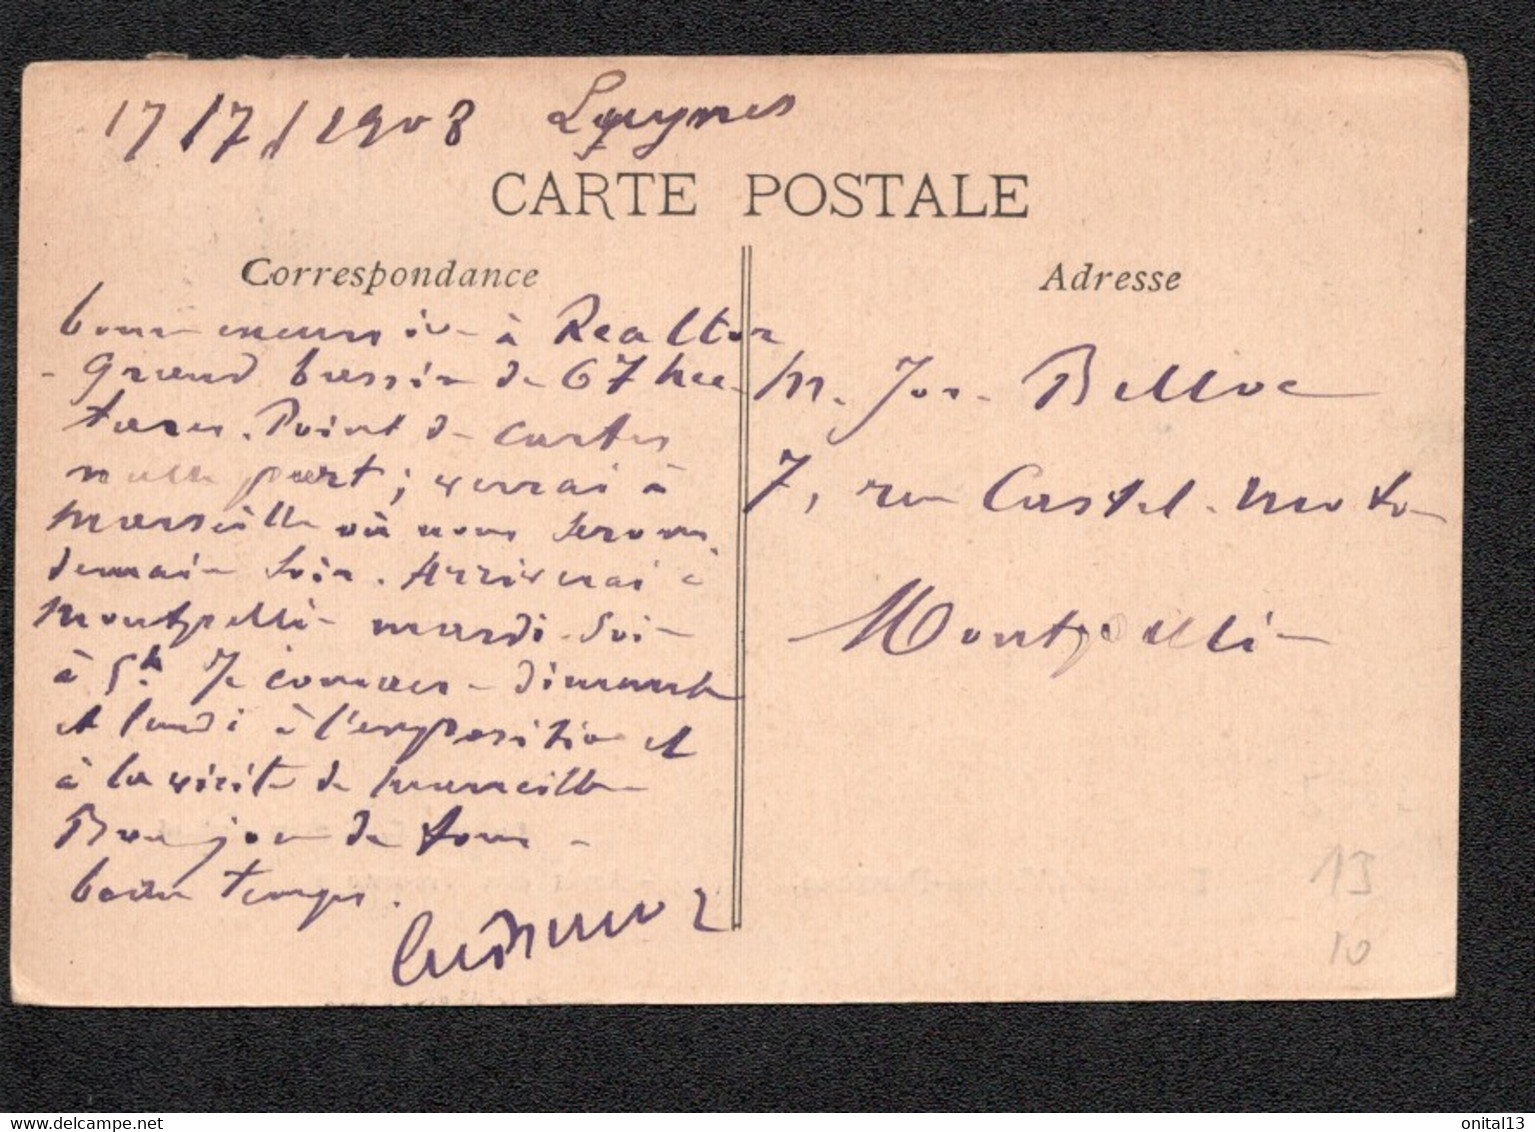 17/7/1908 Luynes
CARTE POSTALE
Correspondance
Adresse
bonne excursion à Realtor
- Grand bassin de 67 hec-
tares. Point de cartes
nulle part ; verrai à
Marseille où nous serons
demain soir. Arriverai à
Montpellier mardi soir
à 5h. Je consacre dimanche
et lundi à l'exposition et
à la visite de Marseille
Bonjour de tous -
beau temps.
M. Jos. Belloc
7, rue Castel-Moton
Montpellier
13
10
delcampe.net
onital13